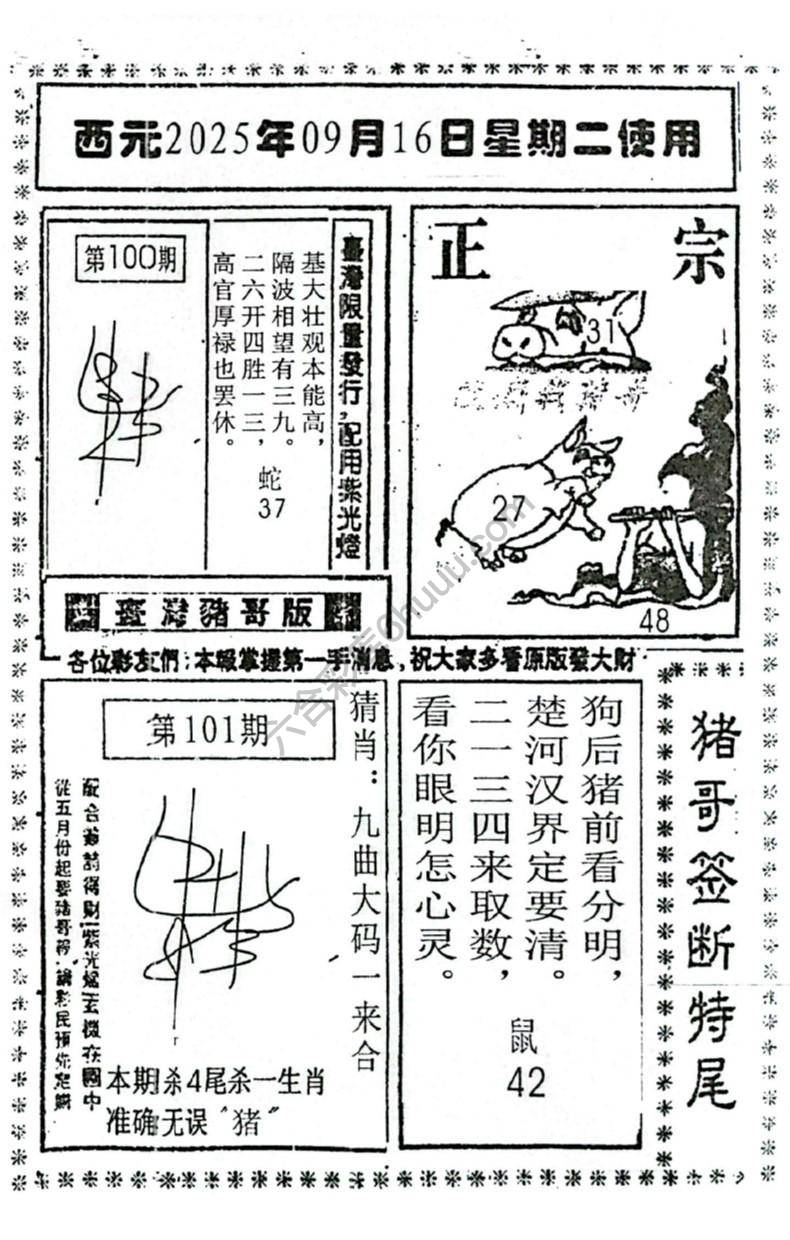 西元2025年09月16日星期二使用
第100期
基大壮观本能高，
隔波相望有三九。
二六开四胜一三，
高官厚禄也罢休。
蛇
37
臺灣限量發行，配用紫光燈
正宗
31
27
48
臺灣豬哥版
各位彩友們：本報掌握第一手消息，祝大家多看原版發大財
第101期
猜肖：九曲大码一来合
從五月份起要豬哥報，請彩民預先定購
本期杀4尾杀一生肖
准确无误“猪”
狗后猪前看分明，
楚河汉界定要清。
二一三四来取数，
看你眼明怎心灵。
鼠
42
猪哥签断特尾
六合彩库6huuu.com